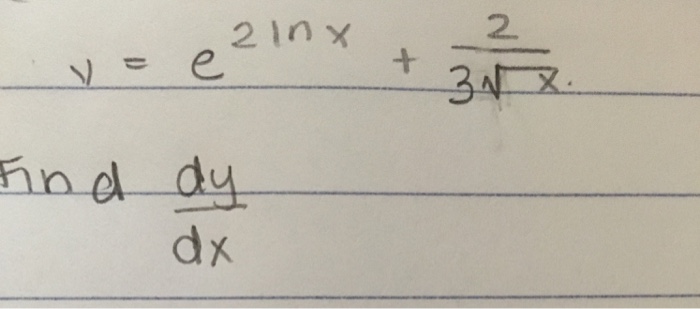 y = e^{2 ln x} + \frac{2}{3\sqrt{x}}.
Find \frac{dy}{dx}